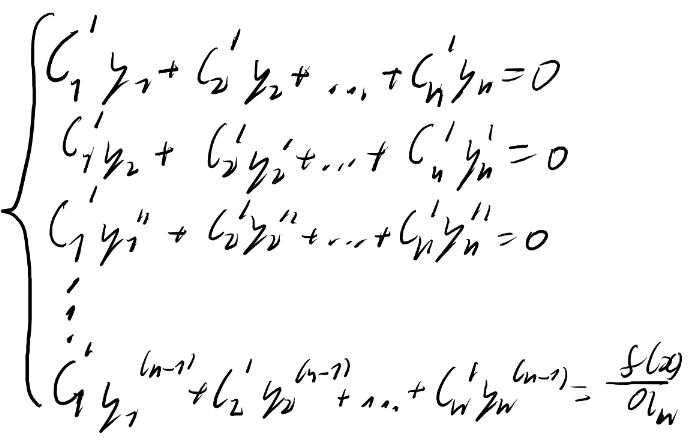 C₁' y₁ + C₂' y₂ + ... + Cₙ' yₙ = 0
C₁' y₂ + C₂' y₂' + ... + Cₙ' yₙ' = 0
C₁' y₁'' + C₂' y₂'' + ... + Cₙ' yₙ'' = 0
⋮
C₁' y₁⁽ⁿ⁻¹⁾ + C₂' y₂⁽ⁿ⁻¹⁾ + ... + Cₙ' yₙ⁽ⁿ⁻¹⁾ = f(x)/aₙ